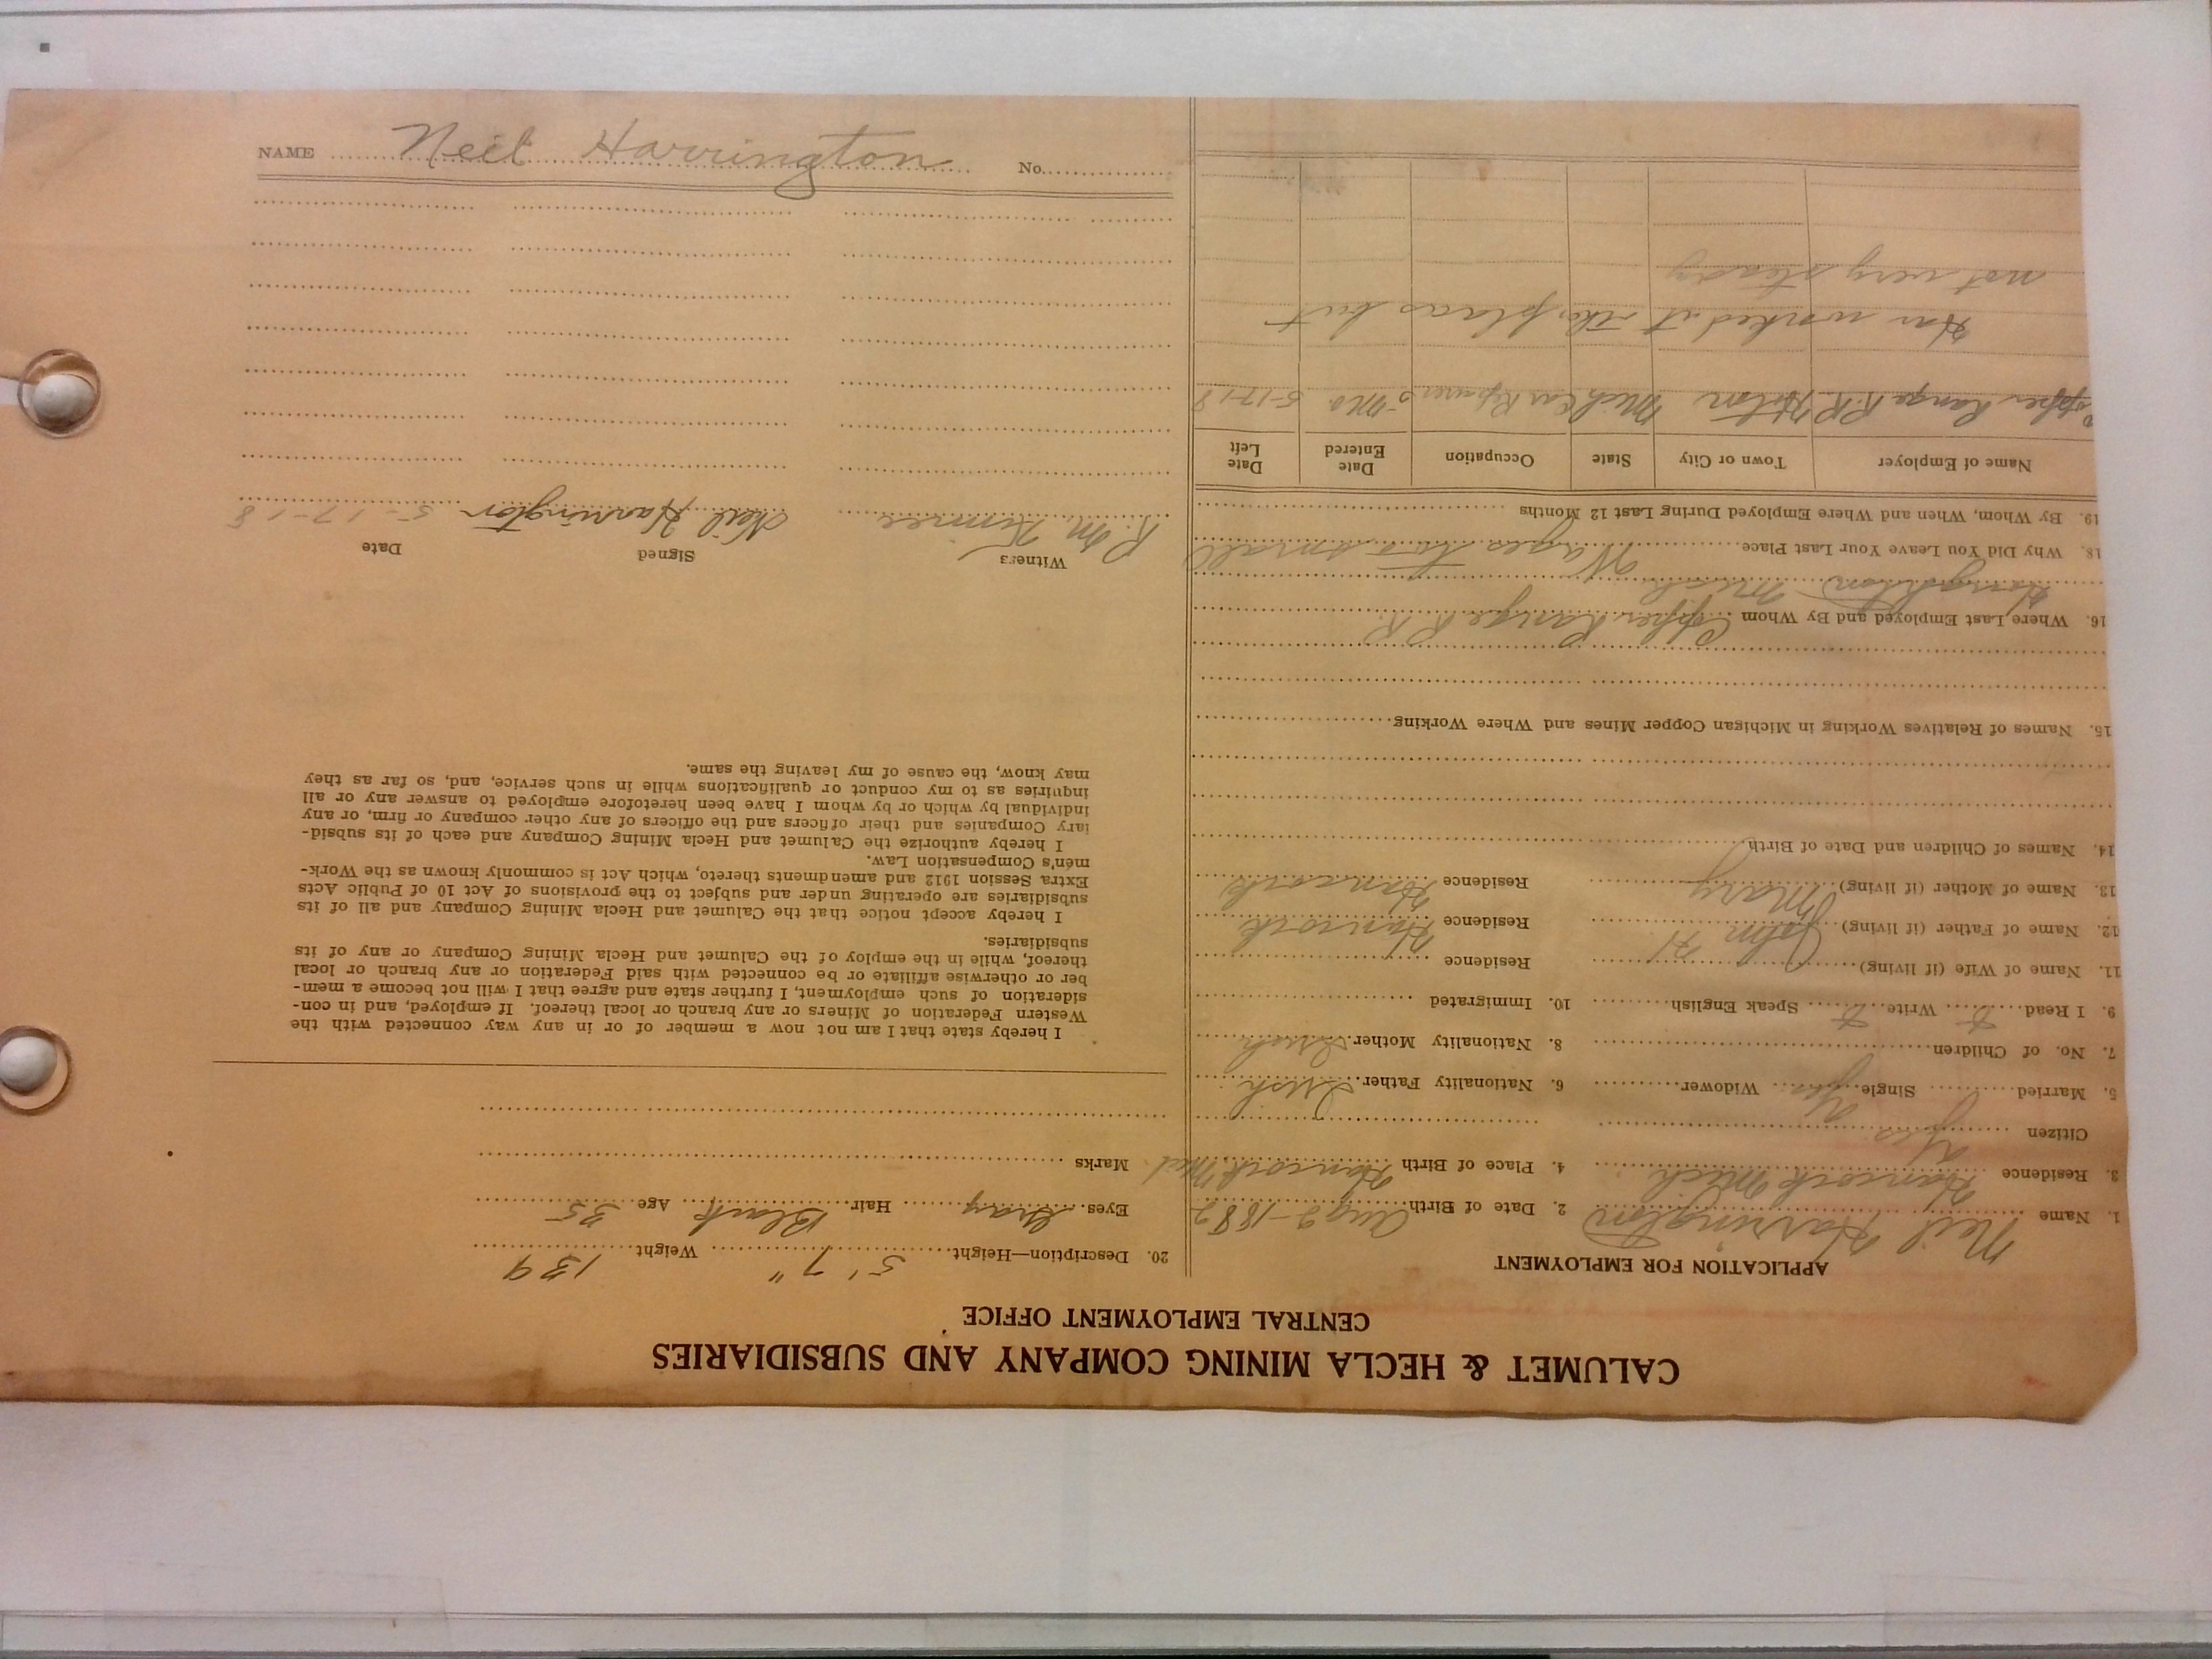 CALUMET & HECLA MINING COMPANY AND SUBSIDIARIES
CENTRAL EMPLOYMENT OFFICE
APPLICATION FOR EMPLOYMENT
1. Name Neil Harrington 2. Date of Birth Aug 2-1882
3. Residence Hancock Mich 4. Place of Birth Hancock Mich
Citizen yes
5. Married Single yes Widower 6. Nationality Father Irish
7. No. of Children 8. Nationality Mother Irish
9. I Read Write Speak English 10. Immigrated
11. Name of Wife (if living) Residence
12. Name of Father (if living) John H Residence Hancock
13. Name of Mother (if living) Mary Residence Hancock
14. Names of Children and Date of Birth
15. Names of Relatives Working in Michigan Copper Mines and Where Working
16. Where Last Employed and By Whom Copper Range R.R.
Houghton Mich
18. Why Did You Leave Your Last Place Wages too small
19. By Whom, When and Where Employed During Last 12 Months
Name of Employer Town or City State Occupation Date Entered Date Left
Copper Range R.R. Hoton Mich Car Repairer 5-Mo. 5-17-18
Has worked at other places but
not very steady
20. Description—Height 5' 7" Weight 139
Eyes Gray Hair Black Age 35
Marks
I hereby state that I am not now a member of or in any way connected with the
Western Federation of Miners or any branch or local thereof. If employed, and in con-
sideration of such employment, I further state and agree that I will not become a mem-
ber or otherwise affiliate or be connected with said Federation or any branch or local
thereof, while in the employ of the Calumet and Hecla Mining Company or any of its
subsidiaries.
I hereby accept notice that the Calumet and Hecla Mining Company and all of its
subsidiaries are operating under and subject to the provisions of Act 10 of Public Acts
Extra Session 1912 and amendments thereto, which Act is commonly known as the Work-
men's Compensation Law.
I hereby authorize the Calumet and Hecla Mining Company and each of its subsid-
iary Companies and their officers and the officers of any other company or firm, or any
individual by which or by whom I have been heretofore employed to answer any or all
inquiries as to my conduct or qualifications while in such service, and, so far as they
may know, the cause of my leaving the same.
Witness Signed Date
R. M. Neil Harrington 5-17-18
NAME Neil Harrington No.